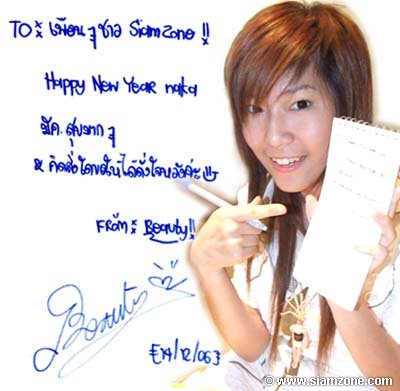 TO : เพื่อน ๆ ชาว Siam Zone !!
Happy New Year naka
มีค. สุขมาก ๆ
& คิดสิ่งใดขอให้ได้ดั่งใจหวังค่ะ
From : Beauty !!
Beauty
{14/12/06}
© www.siamzone.com